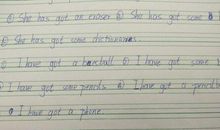 ① She has got an eraser ② She has got some
③ She has got some dictionaries.
① I have got a baseball ② I have got some
I have got some pencils ② I have got a pencil
① I have got a phone.